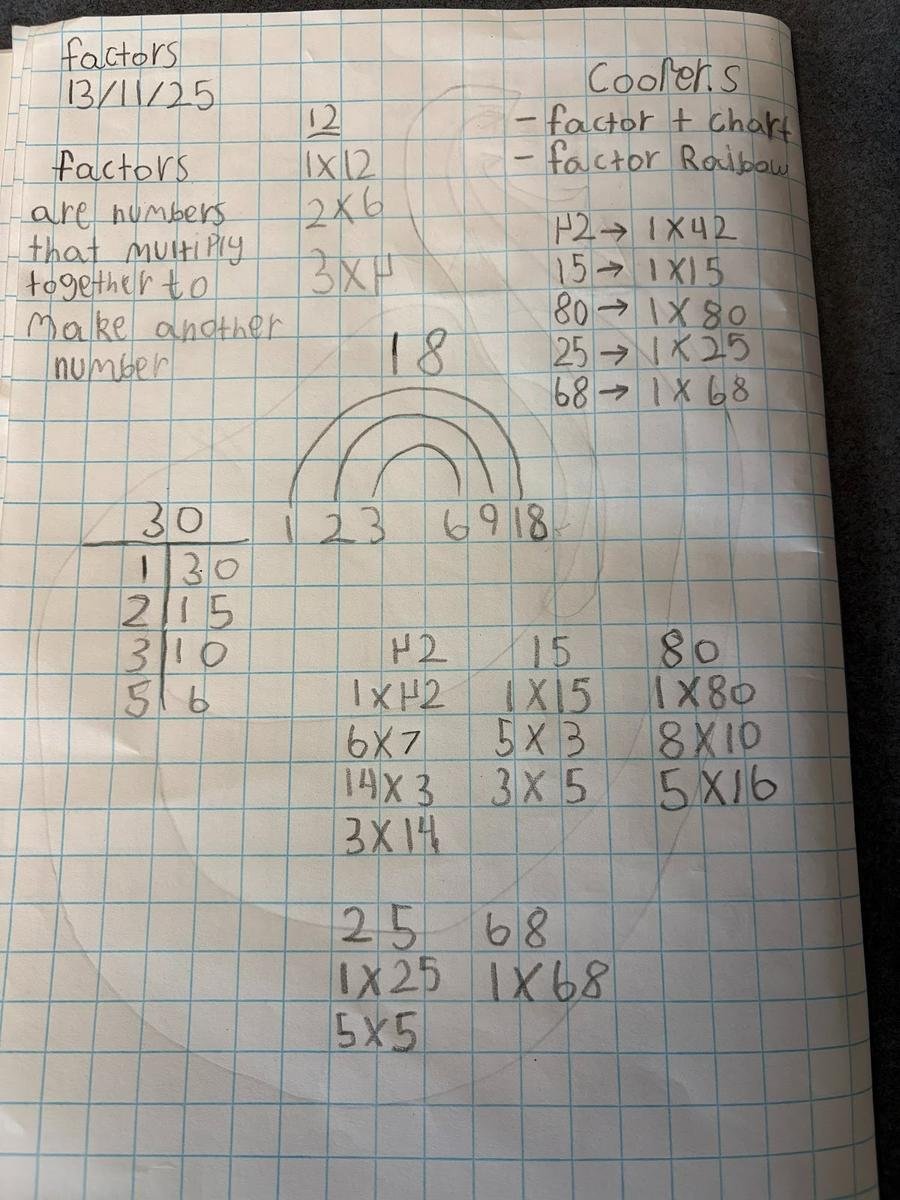 factors
13/11/25
factors
are numbers
that multiply
together to
Make another
number
12
1x12
2x6
3x4
Cooper.s
- factor + chart
- factor Raibow
42→ 1x42
15→ 1x15
80→ 1x80
25→ 1x25
68→ 1x68
18
1 2 3 6 9 18
30
1 30
2 15
3 10
5 6
42 15 80
1x42 1x15 1x80
6x7 5x3 8x10
14x3 3x5 5x16
3x14
25 68
1x25 1x68
5x5